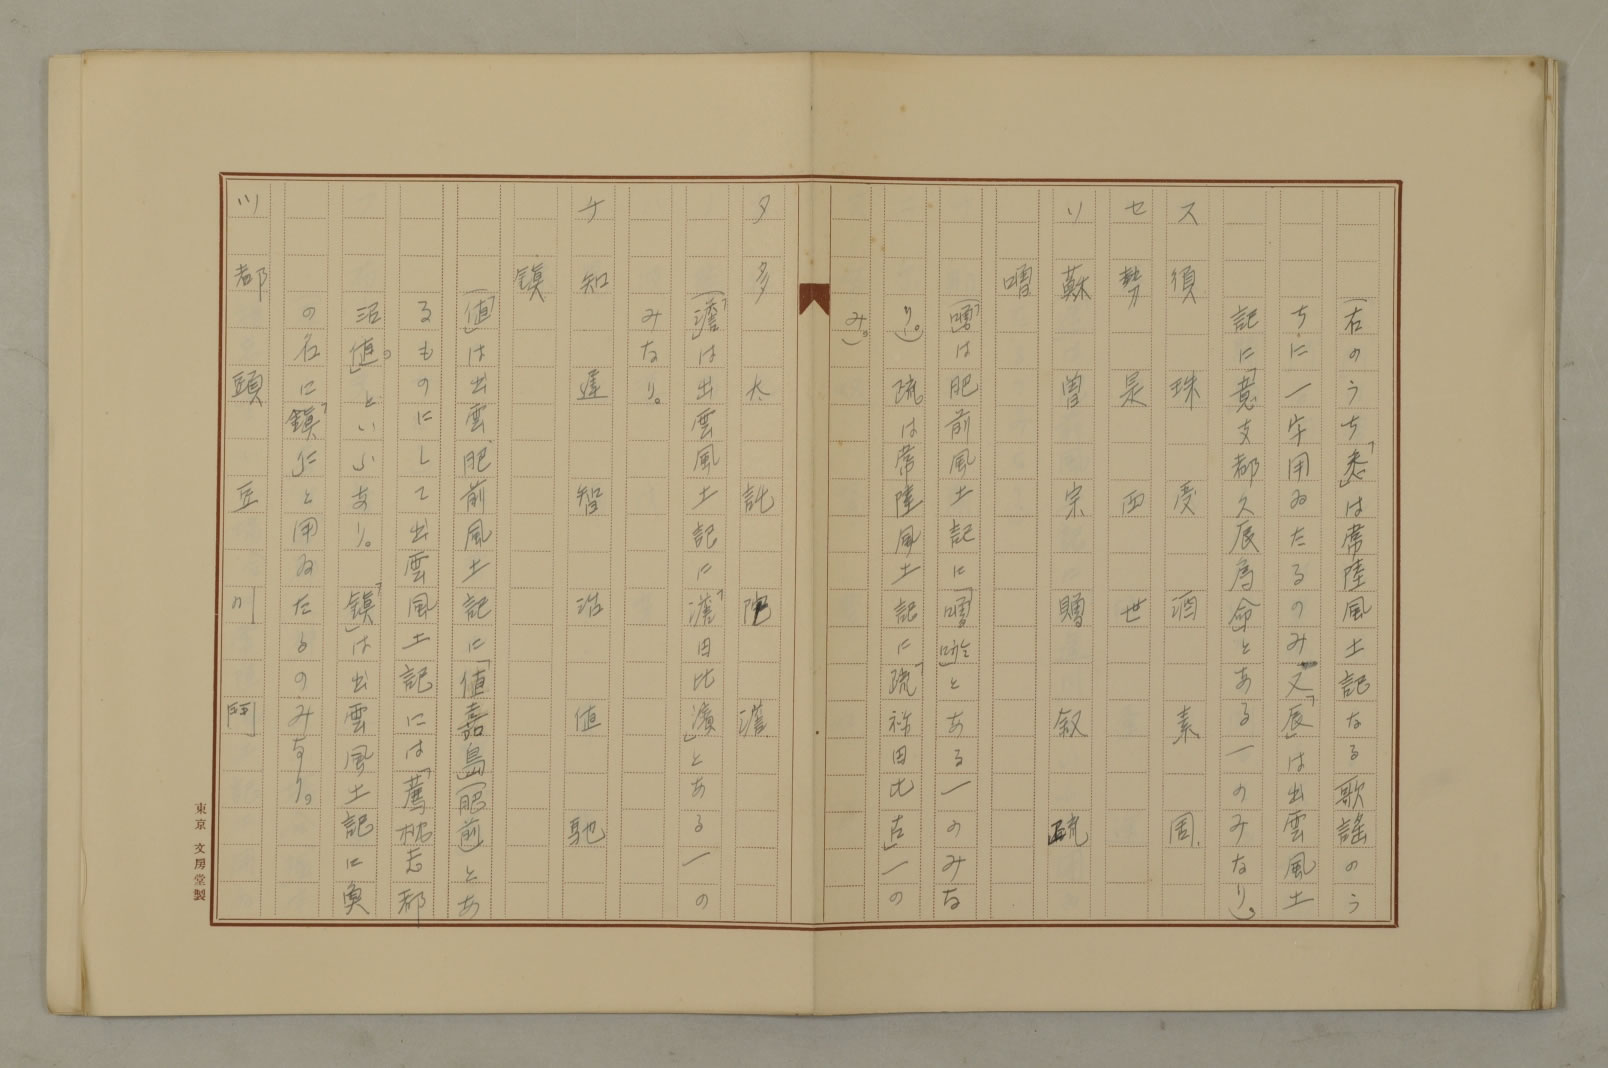 (右のうち「忩」は常陸風土記なる歌謡のう
ちに一字用ゐたるのみ又「辰」は出雲風土
記に「意支都久辰為命」とある一のみなり)。
ス 須 珠 受 酒 素 周
セ 勢 是 西 世
ソ 蘇 曽 宗 贈 叙 疏
噌
(「噌」は肥前風土記に「噌唹」とある一のみな
り。) 疏は常陸風土記に「疏祢田比古」一の
み。)
タ 多 太 託 陁 澹
(「澹」は出雲風土記に「澹由比濱」とある一の
みなり。
チ 知 遅 智 沼 値 馳
鎮
(「値」は出雲肥前風土記に「値嘉島(肥前)とあ
るものにして出雲風土記には「薦枕志都
沼値」といふあり。「鎮」は出雲風土記に奥
の名に「鎮仁」と用ゐたるのみなり。
ツ 都 頭 豆 川 門
東京 文房堂製